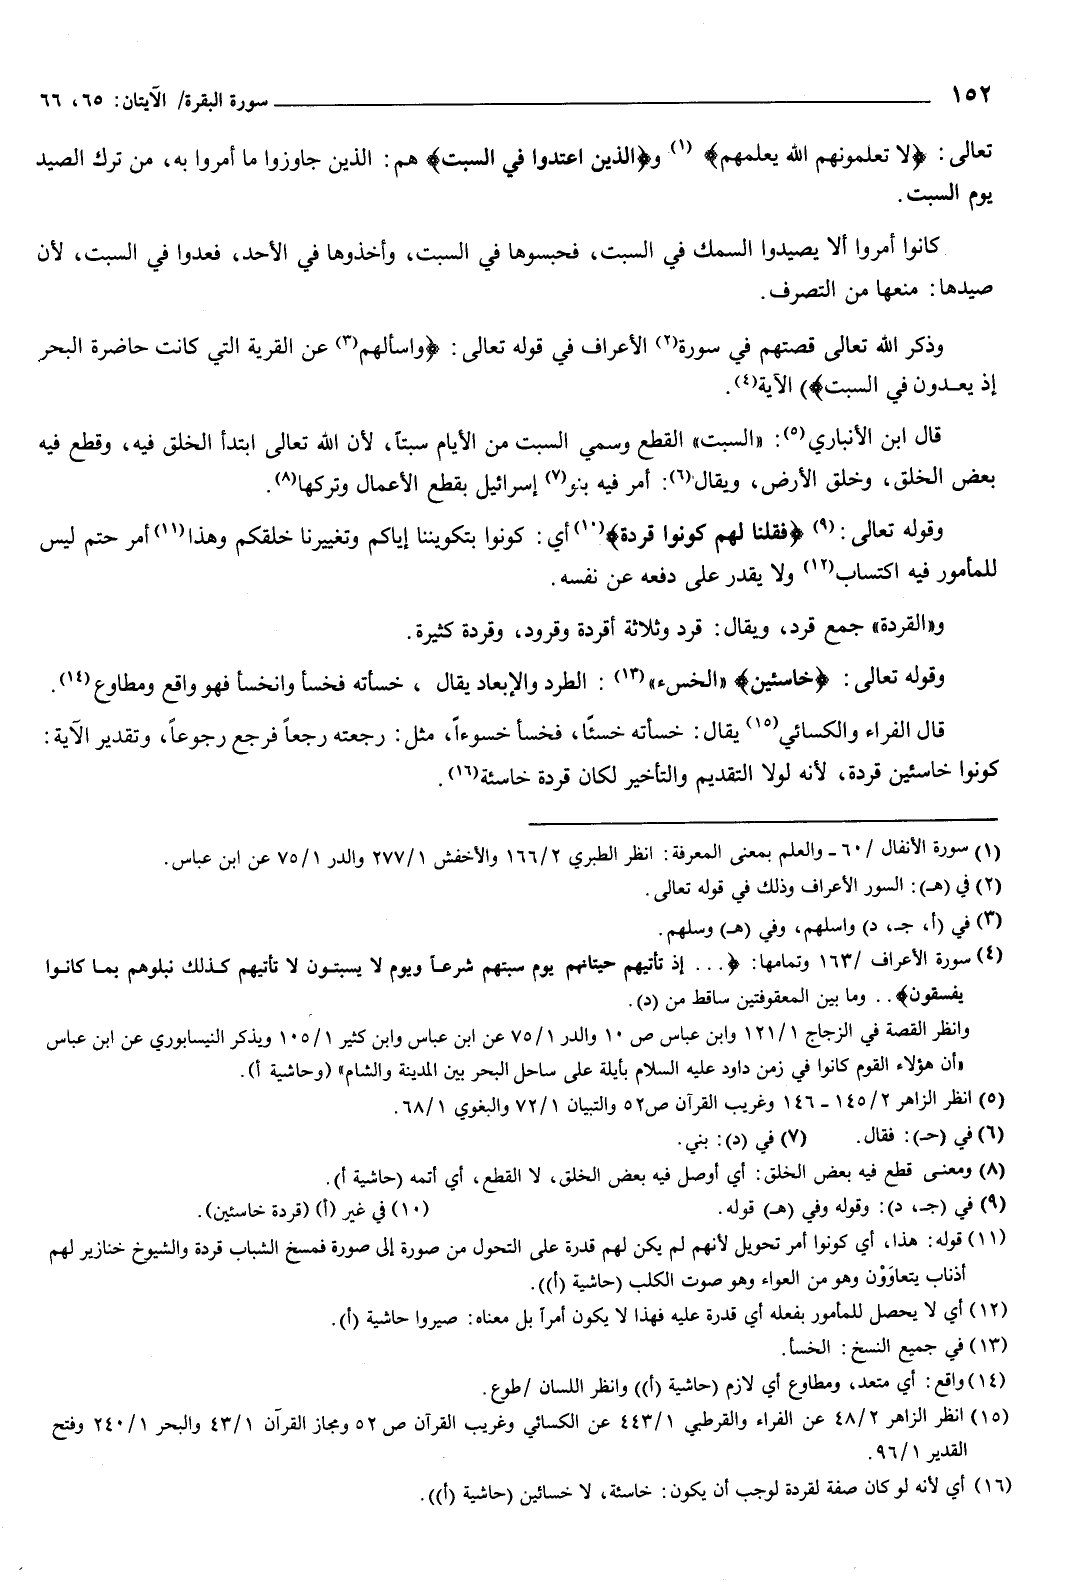 ١٥٢ سورة البقرة/ الآيتان: ٦٥، ٦٦
تعالى: ﴿لا تعلمونهم الله يعلمهم﴾ (١) و﴿الذين اعتدوا في السبت﴾ هم: الذين جاوزوا ما أمروا به، من ترك الصيد
يوم السبت.
كانوا أمروا ألا يصيدوا السمك في السبت، فحبسوها في السبت، وأخذوها في الأحد، فعدوا في السبت، لأن
صيدها: منعها من التصرف.
وذكر الله تعالى قصتهم في سورة(٢) الأعراف في قوله تعالى: ﴿واسألهم(٣) عن القرية التي كانت حاضرة البحر
إذ يعدون في السبت﴾) الآية(٤).
قال ابن الأنباري(٥): «السبت» القطع وسمي السبت من الأيام سبتاً، لأن الله تعالى ابتدأ الخلق فيه، وقطع فيه
بعض الخلق، وخلق الأرض، ويقال(٦): أمر فيه بنو(٧) إسرائيل بقطع الأعمال وتركها(٨).
وقوله تعالى:(٩) ﴿فقلنا لهم كونوا قردة﴾(١٠) أي: كونوا بتكويننا إياكم وتغييرنا خلقكم وهذا(١١) أمر حتم ليس
للمأمور فيه اكتساب(١٢) ولا يقدر على دفعه عن نفسه.
و«القردة» جمع قرد، ويقال: قرد وثلاثة أقردة وقرود، وقردة كثيرة.
وقوله تعالى: ﴿خاسئين﴾ «الخسء»(١٣) : الطرد والإبعاد يقال ، خسأته فخسأ وانخسأ فهو واقع ومطاوع(١٤).
قال الفراء والكسائي(١٥) يقال: خسأته خسئًا، فخسأ خسوءاً، مثل: رجعته رجعاً فرجع رجوعاً، وتقدير الآية:
كونوا خاسئين قردة، لأنه لولا التقديم والتأخير لكان قردة خاسئة(١٦).
(١) سورة الأنفال /٦٠ ـ والعلم بمعنى المعرفة: انظر الطبري ١٦٦/٢ والأخفش ٢٧٧/١ والدر ٧٥/١ عن ابن عباس.
(٢) في (هـ): السور الأعراف وذلك في قوله تعالى.
(٣) في (أ، جـ، د) واسلهم، وفي (هـ) وسلهم.
(٤) سورة الأعراف /١٦٣ وتمامها: ﴿... إذ تأتيهم حيتانهم يوم سبتهم شرعاً ويوم لا يسبتون لا تأتيهم كذلك نبلوهم بما كانوا
يفسقون﴾.. وما بين المعقوفتين ساقط من (د).
وانظر القصة في الزجاج ١٢١/١ وابن عباس ص ١٠ والدر ٧٥/١ عن ابن عباس وابن كثير ١٠٥/١ ويذكر النيسابوري عن ابن عباس
«أن هؤلاء القوم كانوا في زمن داود عليه السلام بأيلة على ساحل البحر بين المدينة والشام» (وحاشية أ).
(٥) انظر الزاهر ١٤٥/٢ ـ ١٤٦ وغريب القرآن ص٥٢ والتبيان ٧٢/١ والبغوي ٦٨/١.
(٦) في (حـ): فقال. (٧) في (د): بني.
(٨) ومعنى قطع فيه بعض الخلق: أي أوصل فيه بعض الخلق، لا القطع، أي أتمه (حاشية أ).
(٩) في (جـ، د): وقوله وفي (هـ) قوله. (١٠) في غير (أ) (قردة خاسئين).
(١١) قوله: هذا، أي كونوا أمر تحويل لأنهم لم يكن لهم قدرة على التحول من صورة إلى صورة فمسخ الشباب قردة والشيوخ خنازير لهم
أذناب يتعاوَوْن وهو من العواء وهو صوت الكلب (حاشية (أ)).
(١٢) أي لا يحصل للمأمور بفعله أي قدرة عليه فهذا لا يكون أمراً بل معناه: صيروا حاشية (أ).
(١٣) في جميع النسخ: الخسأ.
(١٤) واقع: أي متعد، ومطاوع أي لازم (حاشية (أ)) وانظر اللسان /طوع.
(١٥) انظر الزاهر ٤٨/٢ عن الفراء والقرطبي ٤٤٣/١ عن الكسائي وغريب القرآن ص ٥٢ ومجاز القرآن ٤٣/١ والبحر ٢٤٠/١ وفتح
القدير ٩٦/١.
(١٦) أي لأنه لو كان صفة لقردة لوجب أن يكون: خاسئة، لا خسائين (حاشية (أ)).